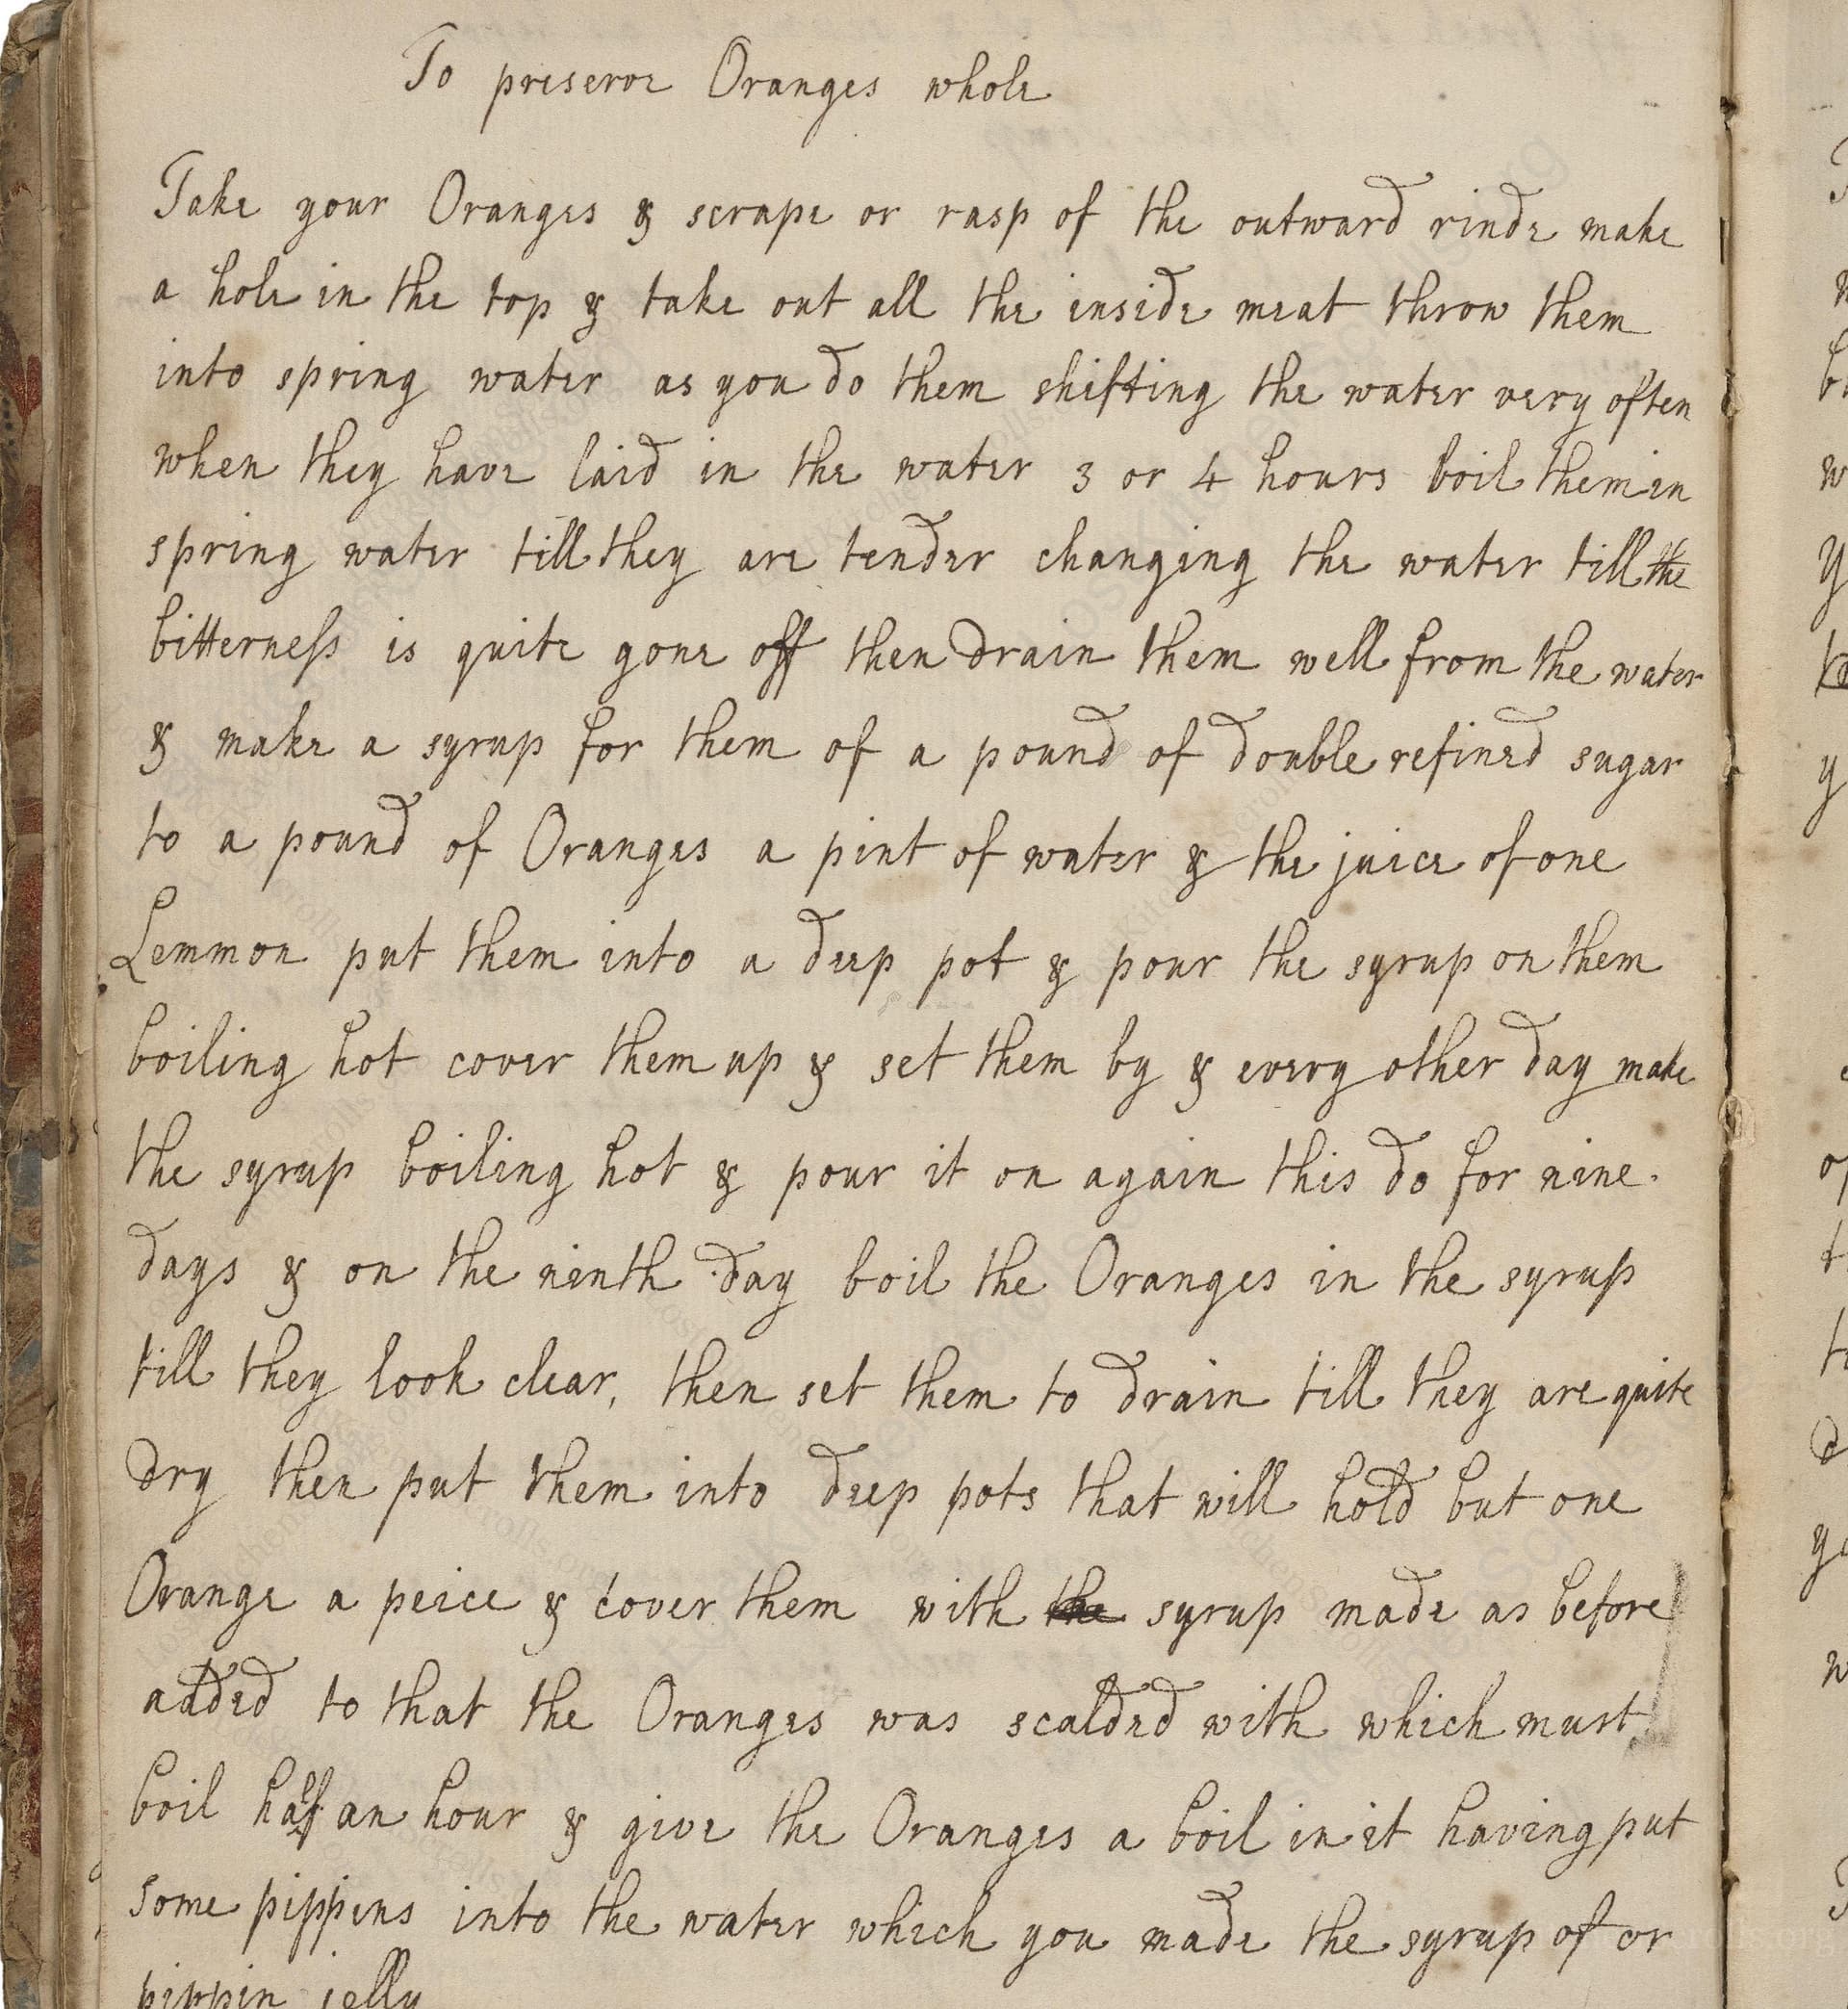 To preserve Oranges whole
Take your Oranges & scrape or rasp of the outward rinde make
a hole in the top & take out all the inside meat throw them
into spring water as you do them shifting the water very often
when they have laid in the water 3 or 4 hours boil them in
spring water till they are tender changing the water till the
bitterneſs is quite gone off then drain them well from the water
& make a syrup for them of a pound of double refined sugar
to a pound of Oranges a pint of water & the juice of one
Lemmon put them into a deep pot & pour the syrup on them
boiling hot cover them up & set them by & every other day make
the syrup boiling hot & pour it on again this do for nine
days & on the ninth day boil the Oranges in the syrup
till they look clear, then set them to drain till they are quite
dry then put them into deep pots that will hold but one
Orange a peice & cover them with the syrup made as before
added to that the Oranges was scalded with which must
boil half an hour & give the Oranges a boil in it having put
some pippins into the water which you made the syrup of or
pippin jelly